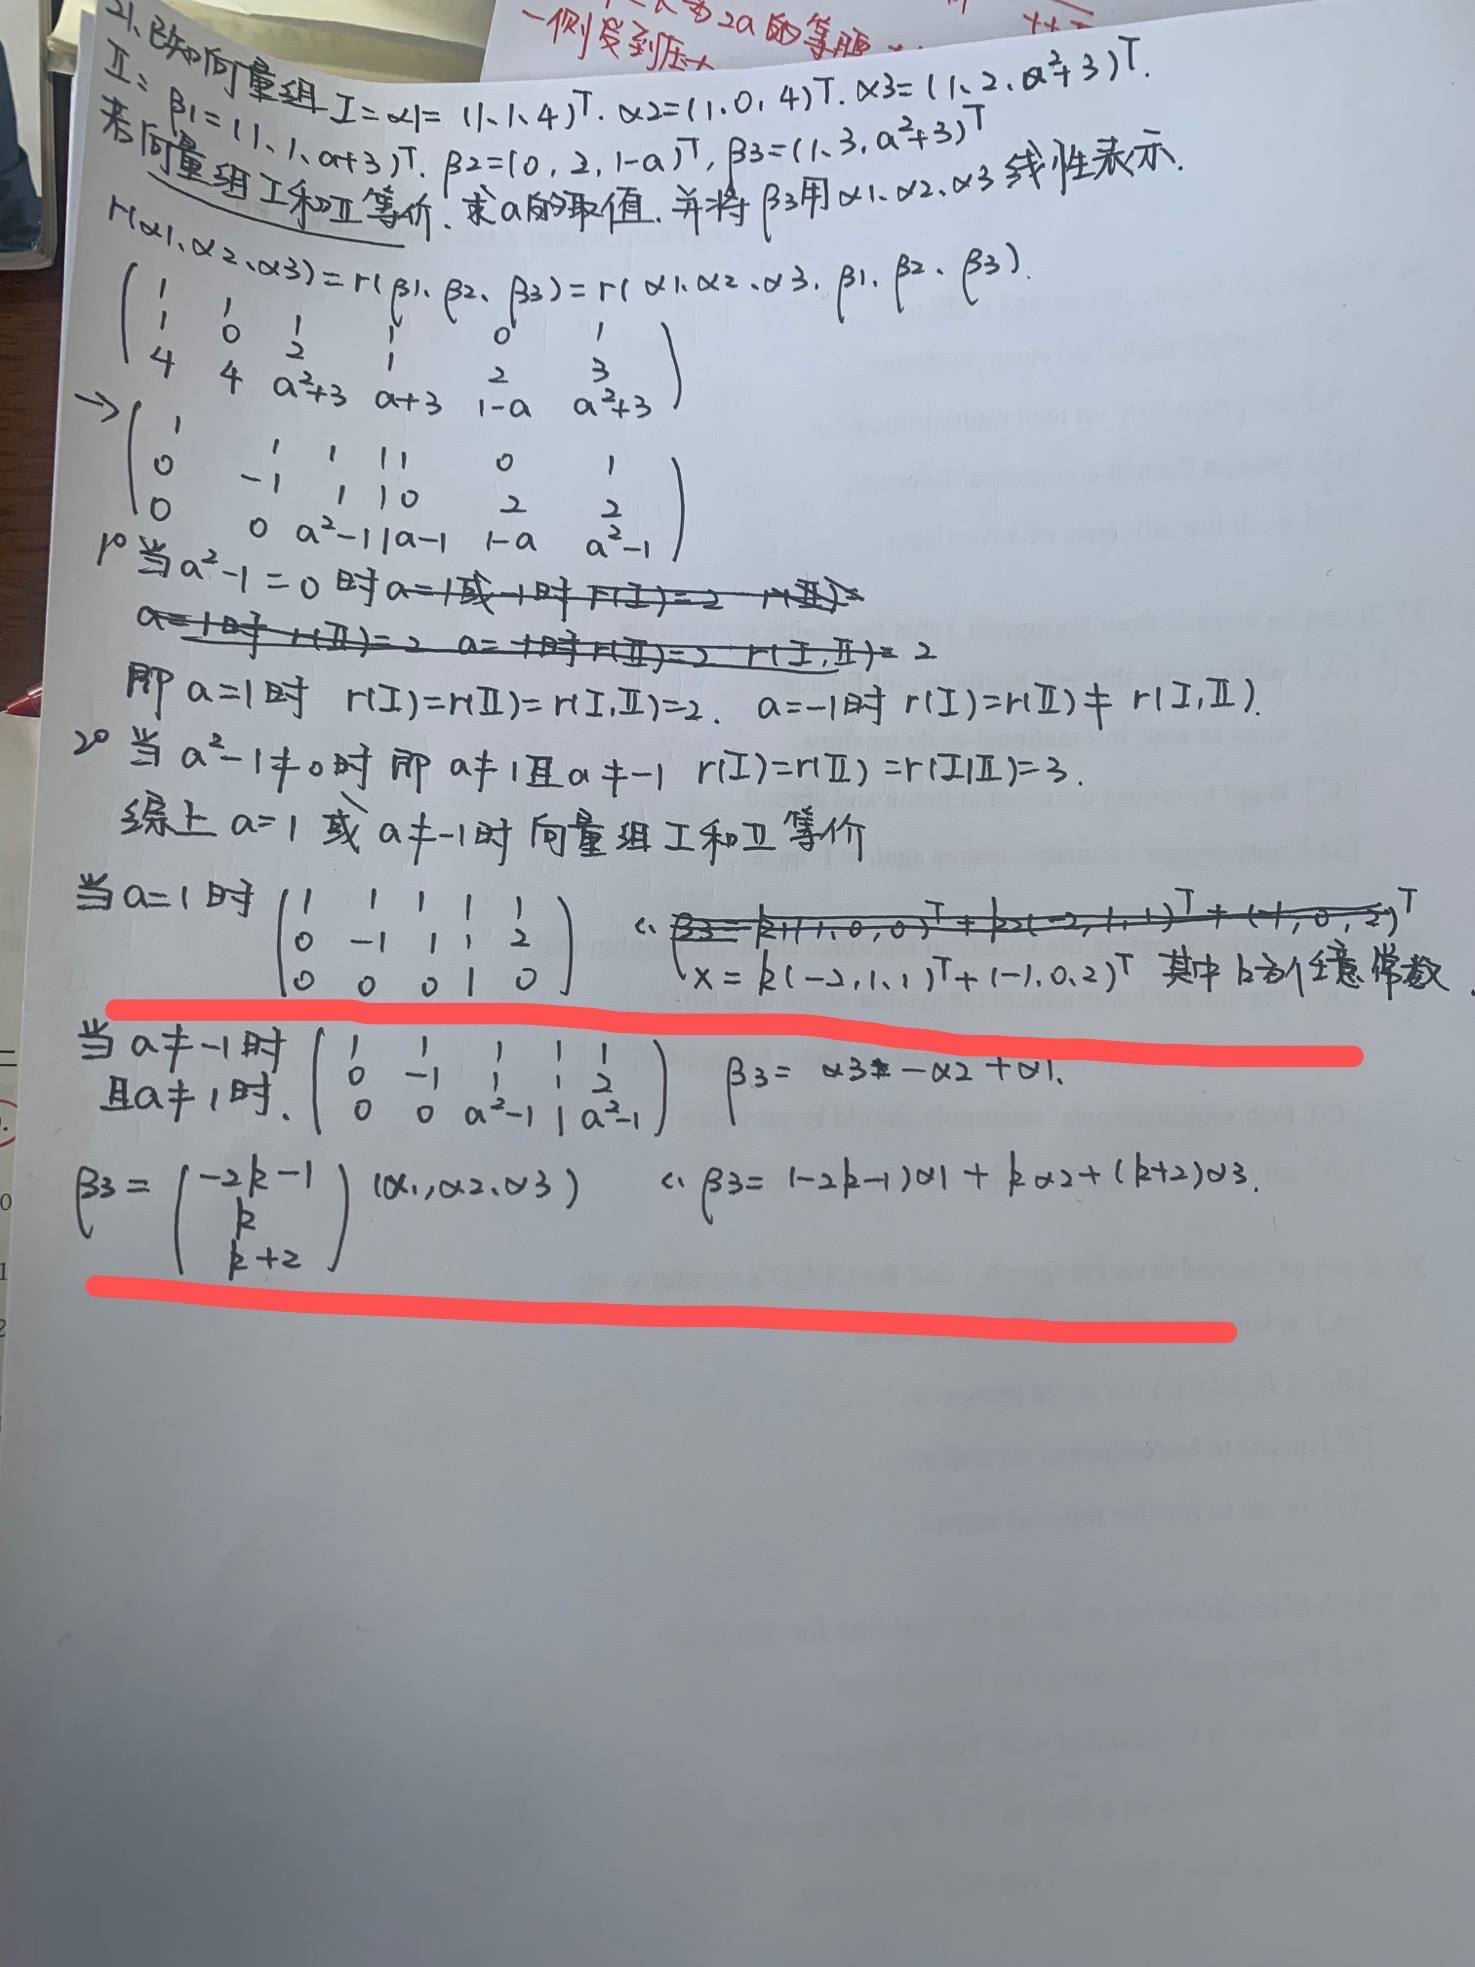 一侧受到压
为2a的等腰
21、已知向量组I=α1=(1、1、4)ᵀ. α2=(1.0.4)ᵀ. α3=(1、2、a²+3)ᵀ.
II: β1=(1、1、a+3)ᵀ. β2=(0,2,1-a)ᵀ, β3=(1、3、a²+3)ᵀ
若向量组I和II等价.求a的取值.并将β3用α1、α2、α3线性表示.
r(α1、α2、α3)=r(β1、β2、β3)=r(α1.α2.α3.β1.β2、β3).
1 1 1 1 0 1
1 0 2 1 2 3
4 4 a²+3 a+3 1-a a²+3
→
1 1 1 | 1 0 1
0 -1 1 | 0 2 2
0 0 a²-1 | a-1 1-a a²-1
1° 当a²-1=0时 a=1或-1时 r(I)=2 r(II)=
a=1时 r(II)=2 a=-1时 r(II)=2 r(I,II)=2
即a=1时 r(I)=r(II)=r(I.II)=2. a=-1时 r(I)=r(II)≠r(I,II).
2° 当a²-1≠0时 即a≠1且a≠-1 r(I)=r(II)=r(I|II)=3.
综上a=1或a≠-1时向量组I和II等价
当a=1时
1 1 1 | 1
0 -1 1 | 2
0 0 0 | 0
∴ β3=k1(1,0,0)ᵀ+k2(-2,1,1)ᵀ+(-1,0,2)ᵀ
x=k(-2,1、1)ᵀ+(-1.0.2)ᵀ 其中k为任意常数.
当a≠-1时
且a≠1时.
1 1 1 | 1
0 -1 1 | 2
0 0 a²-1 | a²-1
β3= α3-α2+α1.
β3=
-2k-1
k
k+2
(α1,α2、α3)
∴ β3=(-2k-1)α1+kα2+(k+2)α3.